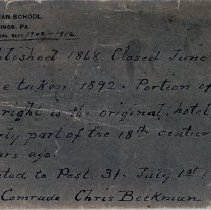 AN SCHOOL,
INGS, PA.
1902-1912
lished 1868 Closed June
e taken. 1892. Portion of
right is the original hotel
rly part of the 18th centur
ars ago.
ated to Post. 31. July 1st 1
Comrade Chris Beekman